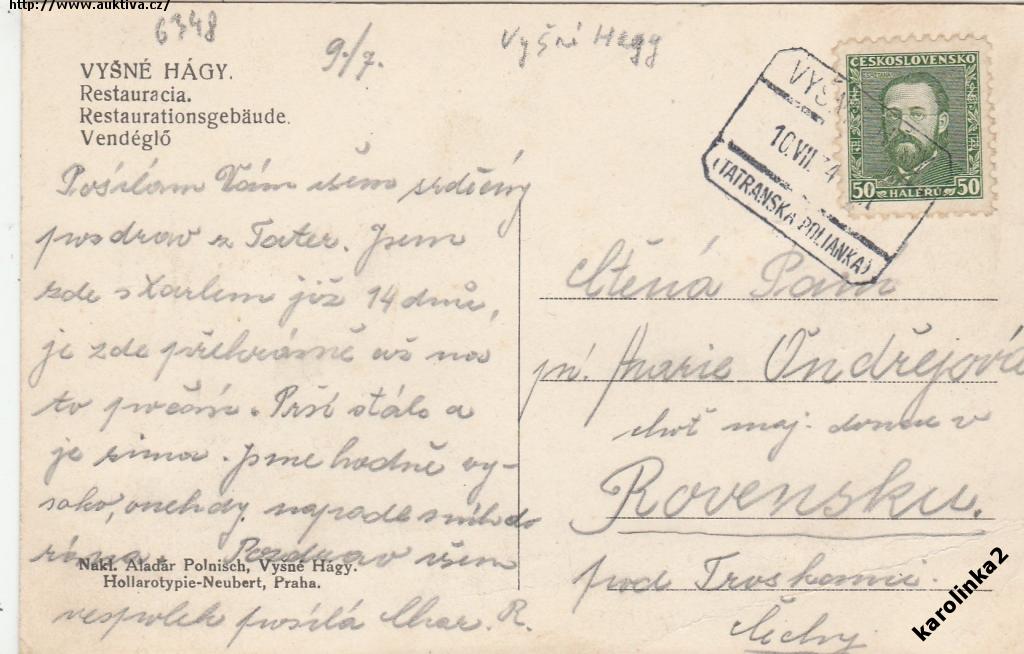 http://www.auktiva.cz/
6348
9./7.
Vyšné Hagy
VYŠNÉ HÁGY.
Restauracia.
Restaurationsgebäude.
Vendéglő
Posílám Vám všem srdečný
pozdrav z Tater. Jsem
zde s Karlem již 14 dnů,
je zde překrásně až na
to počasí. Prší stále a
je zima. Jsme hodně vy-
soko, onehdy napadl sníh do
rána. Pozdrav všem
vespolek posílá Mar. R.
Nakl. Aladár Polnisch, Vyšné Hágy.
Hollarotypie-Neubert, Praha.
ČESKOSLOVENSKO
50 HALÉŘŮ 50
VYŠ
10.VII.34
(TATRANSKÁ POLIANKA)
Ctěná Paní
pí. Marie Ondřejová
choť maj. domu v
Rovensku.
pod Troskami.
Čechy
karolinka2